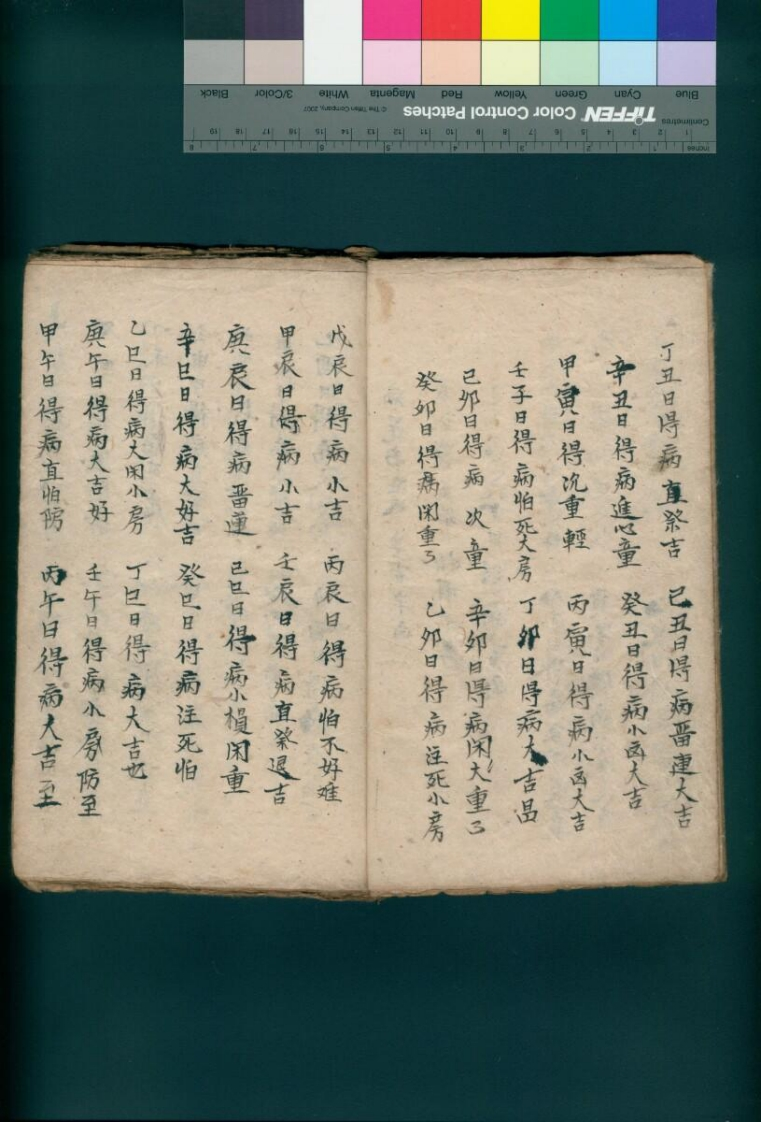 丁丑日得病直祭吉 己丑日得病畨連大吉
辛丑日得病進心童 癸丑日得病小凶大吉
甲寅日得沉重輕 丙寅日得病小凶大吉
壬子日得病怕死大房 丁卯日得病大吉昌
己卯日得病次童 辛卯日得病闲大重了
癸卯日得病闲重了 乙卯日得病注死小房
戊辰日得病小吉 丙辰日得病怕不好难
甲辰日得病小吉 壬辰日得病直祭退吉
庚辰日得病畨運 己巳日得病小損闲重
辛巳日得病大好吉 癸巳日得病注死怕
乙巳日得病大闲小房 丁巳日得病大吉也
庚午日得病大吉好 壬午日得病小房防至
甲午日得病直怕防 丙午日得病大吉至
Blue Cyan Green Yellow Red Magenta White 3/Color Black
TIFFEN Color Control Patches © The Tiffen Company, 2007
Centimetres 1 2 3 4 5 6 7 8 9 10 11 12 13 14 15 16 17 18 19
Inches 1 2 3 4 5 6 7 8